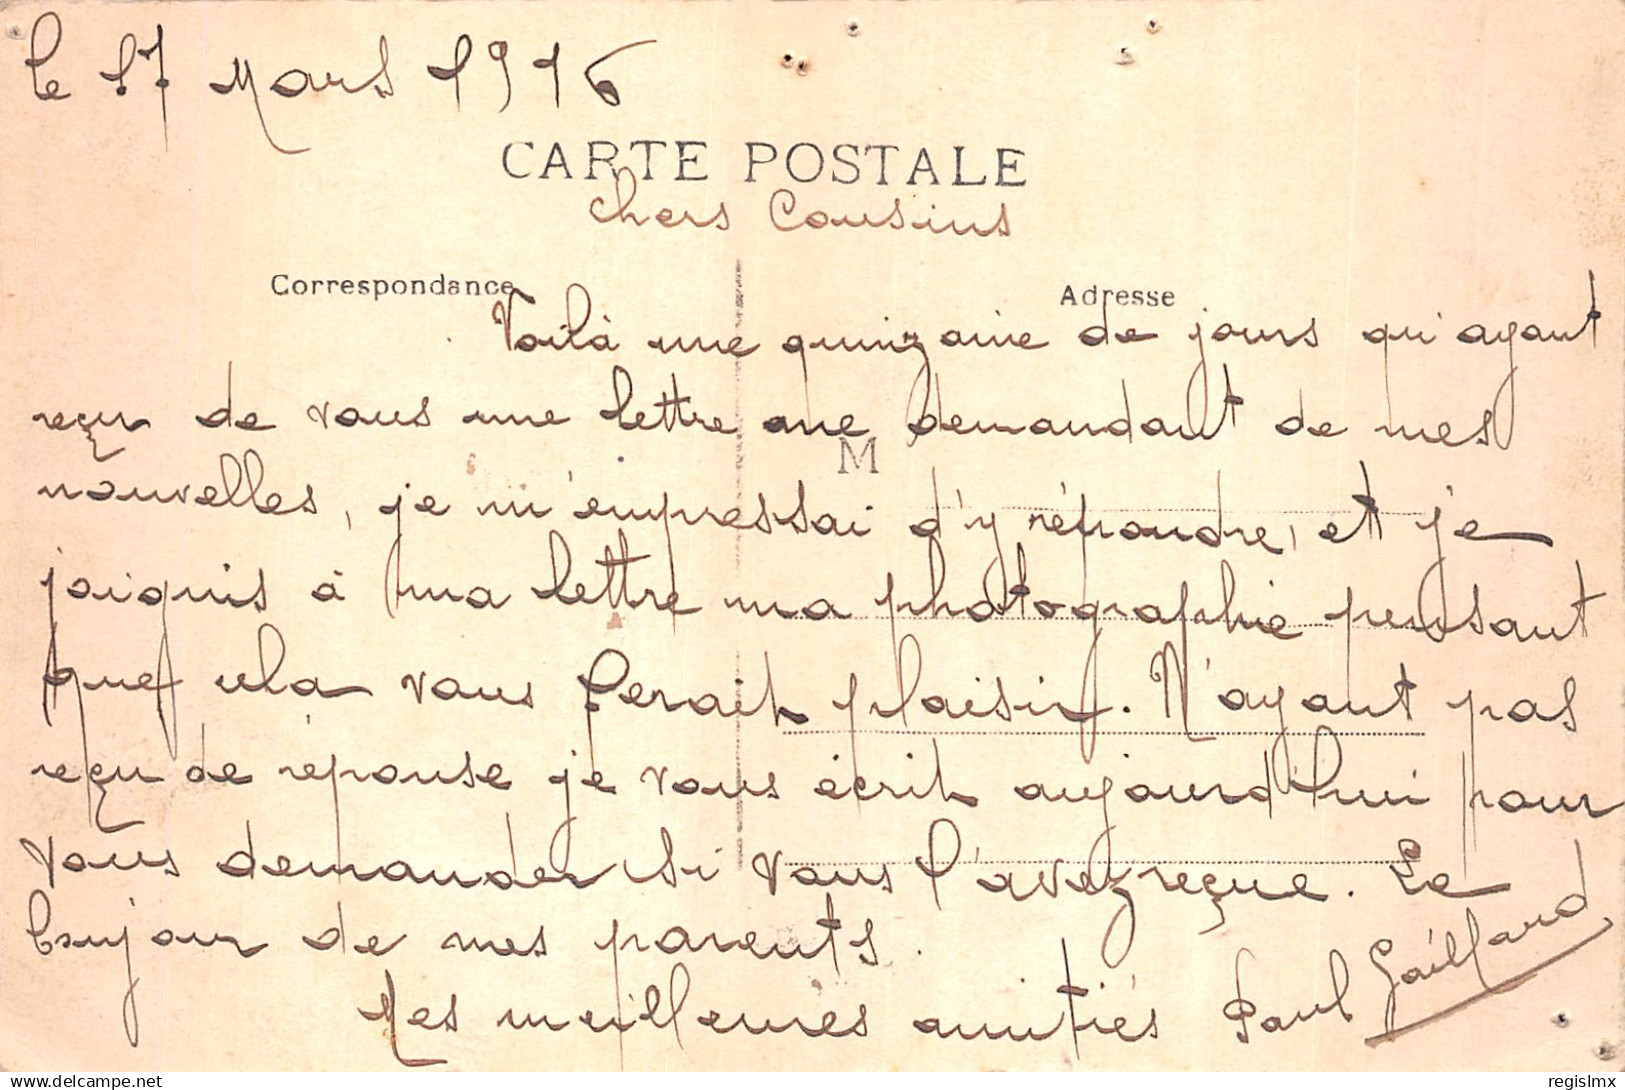 le 17 Mars 1916
CARTE POSTALE
Chers Cousins
Correspondance
Adresse
Voilà une quinzaine de jours qu'ayant
reçu de vous une lettre me demandant de mes
M
nouvelles, je m'empressai d'y répondre, et je
joignis à ma lettre ma photographie pensant
que cela vous ferait plaisir. N'ayant pas
reçu de réponse je vous écrit aujourd'hui pour
vous demander si vous l'avez reçue. Le
bonjour de mes parents.
Mes meilleures amitiés Paul Gaillard
delcampe.net
regislmx